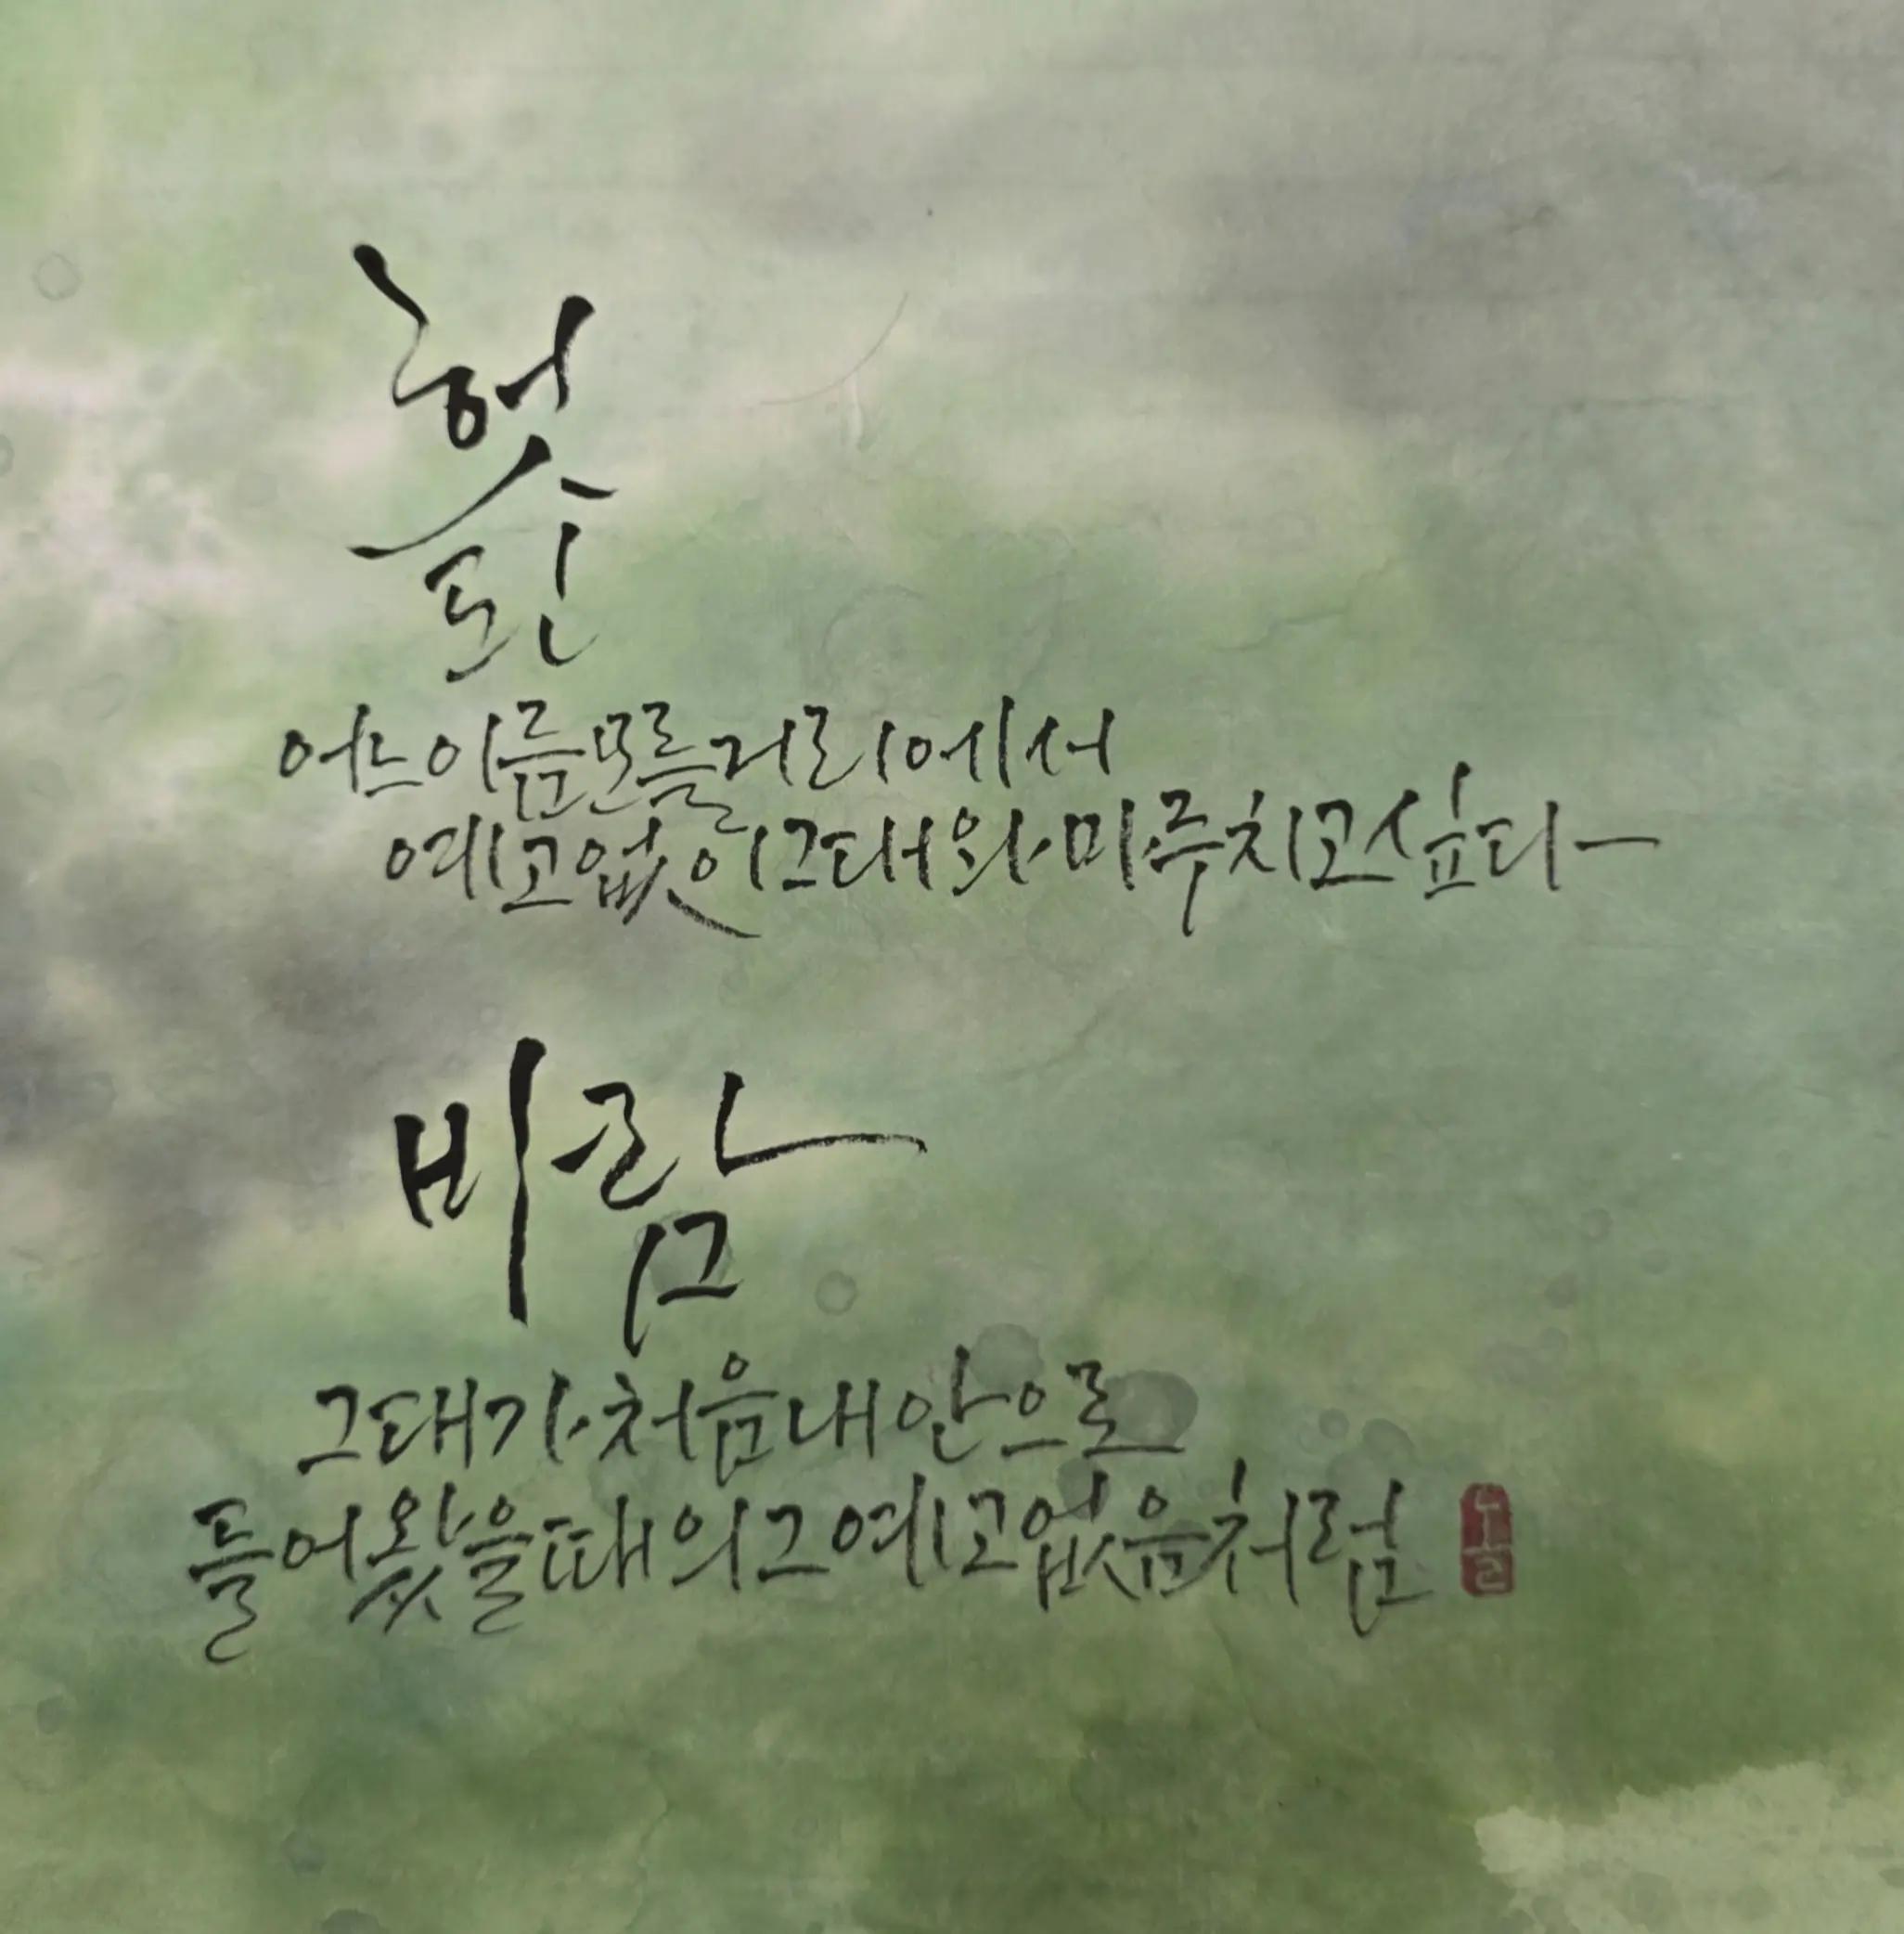 헛된
어느 이름 모를 거리에서
예고 없이 그대와 마주치고 싶다
바람
그대가 처음 내 안으로
들어왔을 때의 그 예고 없음처럼